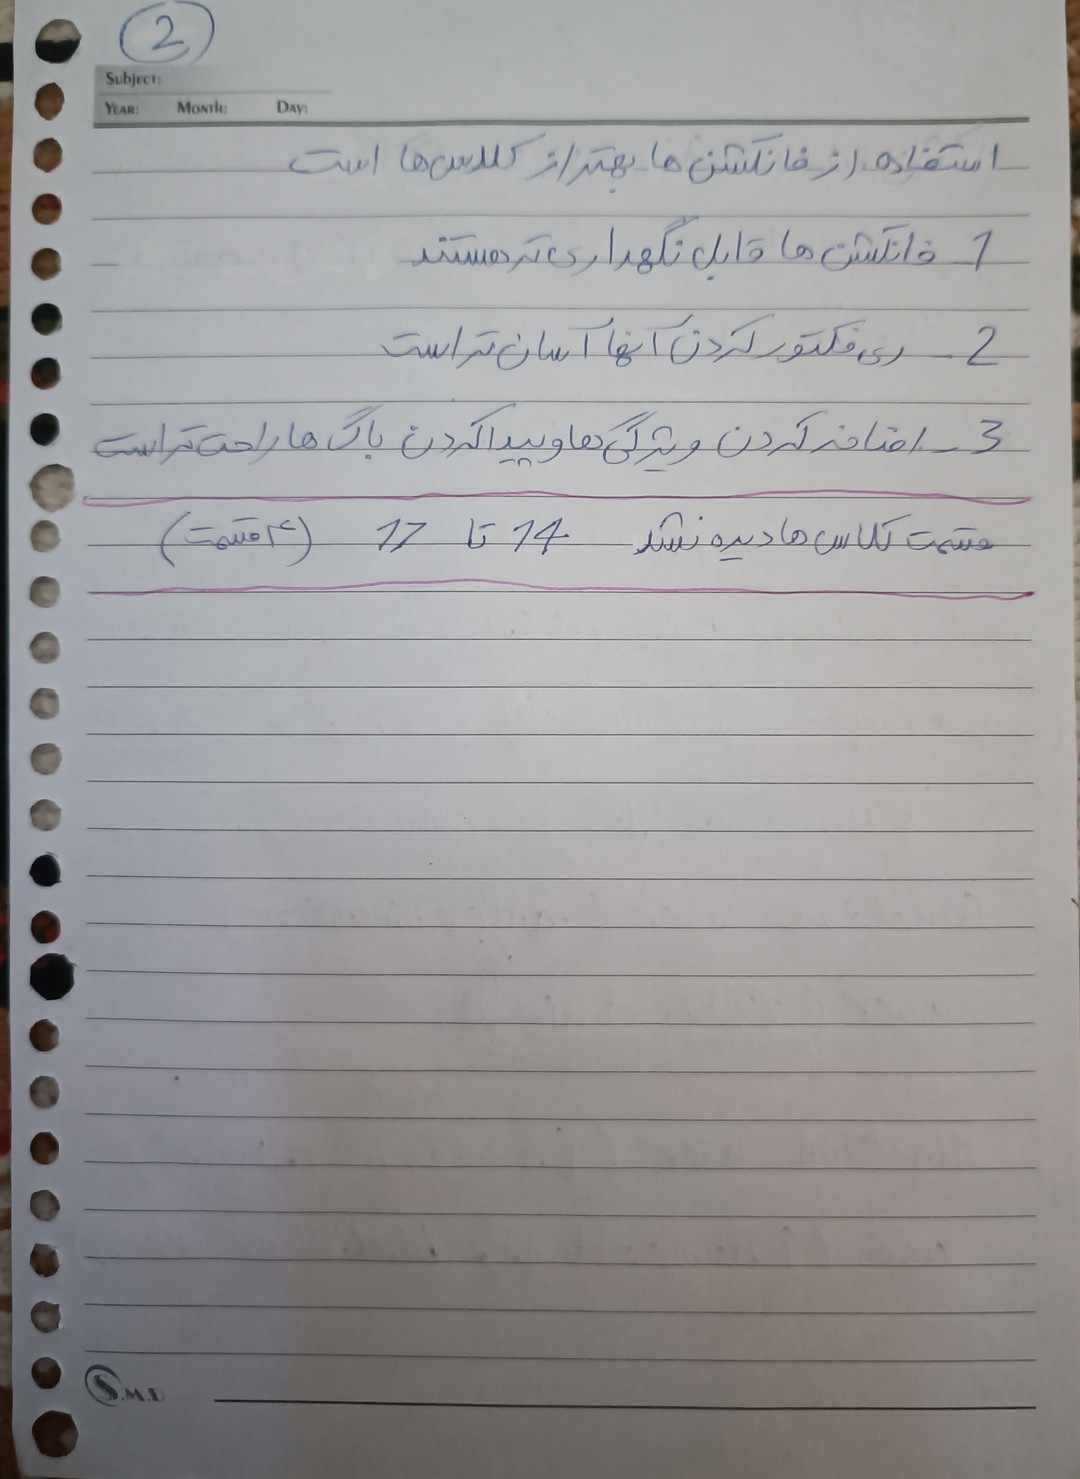 2
Subject:
Year: Month: Day:
استفاده از فانکشن ها بهتر از کلاس ها است
1 _ فانکشن ها قابل نگهداری تر هستند
2 _ ری فکتور کردن آنها آسان تر است
3 _ اضافه کردن ویژگی ها و پیدا کردن باگ ها راحت تر است
قسمت کلاس ها دیده نشد 14 تا 17 (۴ قسمت)
S.M.D